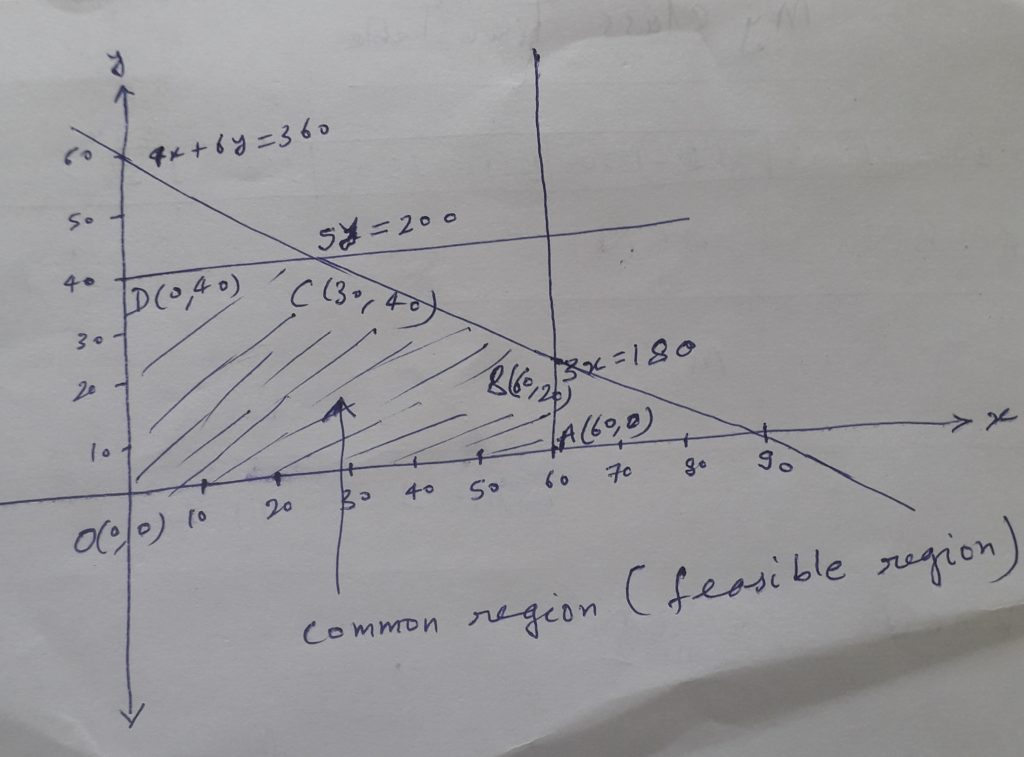 y
60
4x+6y=360
50
5y=200
40
D(0,40)
C(30,40)
30
3x=180
20
B(60,20)
A(60,0)
x
10
O(0,0)
10
20
30
40
50
60
70
80
90
common region (feasible region)